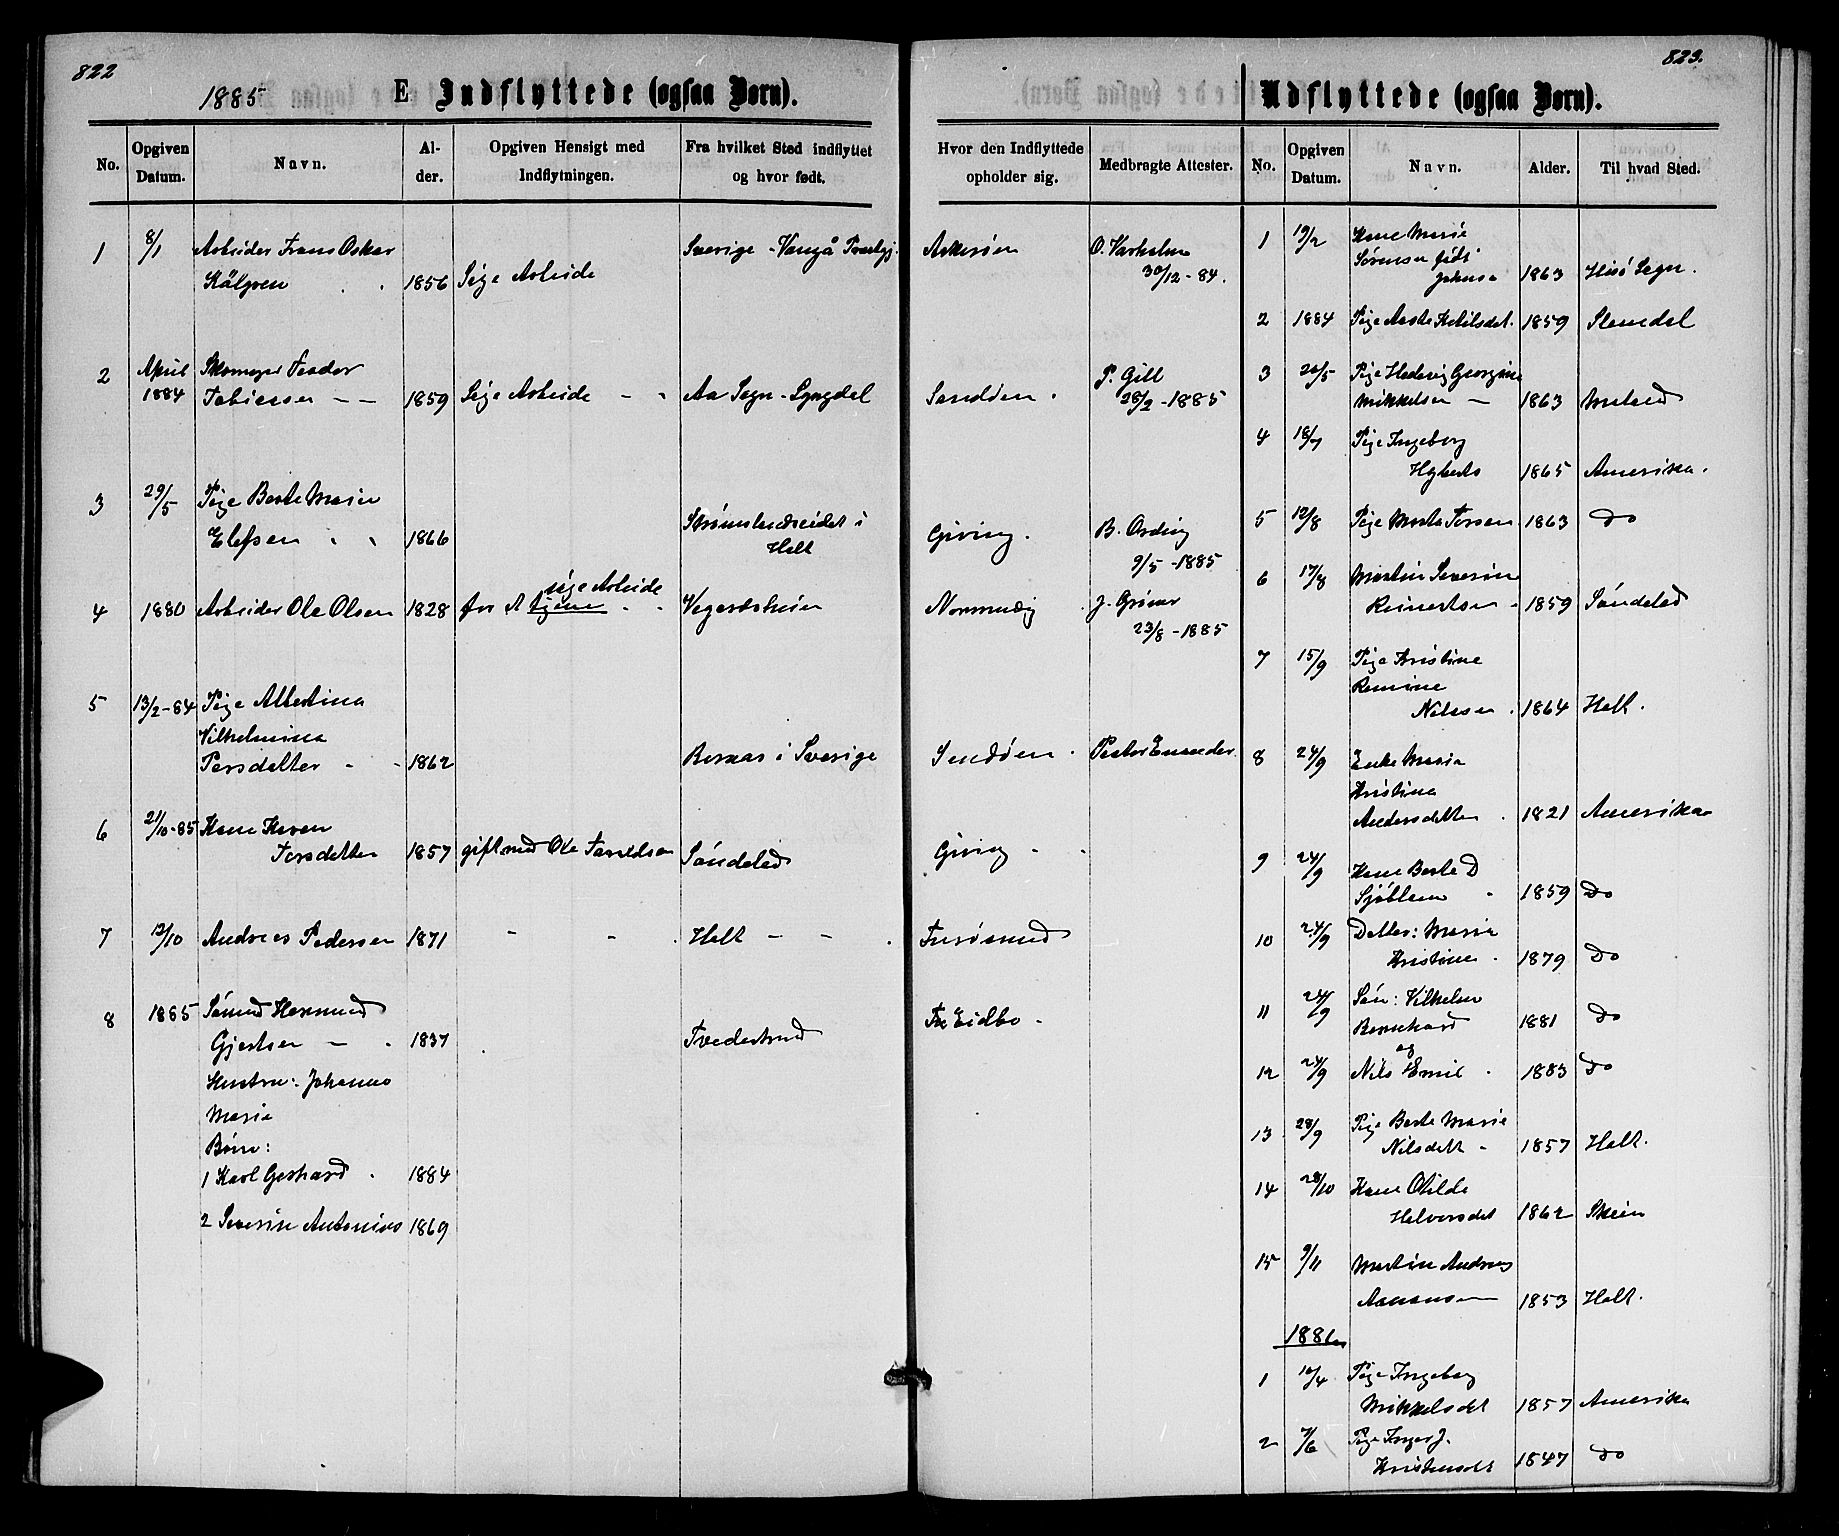 822
1885
E Indflyttede (ogsaa Børn).
No. Opgiven Datum. Navn. Alder. Opgiven Hensigt med Indflytningen. Fra hvilket Sted indflyttet og hvor født. Hvor den Indflyttede opholder sig. Medbragte Attester.
1 8/1 Arbeider Frans Oskar Sverige - Askerøen
1856 Søge Arbeide 30/12 - 84.
2 April Skomager
1884 Tobiassen - - 1859 Søge Arbeide - Aa Sogn - Lyngdal Sandøen . P. Gill
28/2 - 1885
3 29/5 Pige Berte Marie
Elefsen 1866 i Holt Giving. B. Ording
9/5 - 1885
4 1880 Arbeider Ole Olsen 1828 for at tjene søge Arbeide Vegaardsheien J. Grøner
23/8 - 1885
5 13/2 - 84 Pige Albertina
Vilhelmina
Persdatter - - 1862 i Sverige Sandøen . Pastor
6 21/10 - 85 Kone Karen
Torsdatter 1857 gift med Ole Søndeled Giving - -
7 12/10 Andreas Pedersen 1871 - - Holt - -
8 1885
Gjertsen - 1837 Tvedestrand Eidbo -
Hustru: Johanne
Marie
Børn:
1 Karl Gerhard . 1884
2 Severin Antonius 1869
823.
Udflyttede (ogsaa Børn).
No. Opgiven Datum. Navn. Alder. Til hvad Sted.
1 19/2 Kone Marie
Sørensen født
1863 Hisø Sogn.
2 1884 Pige Aaste Ketilsdat. 1859
3 Pige Hedevig Georgine
Mikkelsen - 1863
4 18/7 Pige Ingeborg
1865 Amerika.
5 12/8 Pige 1863 Do
6 17/8 Martin Severin
Reinertsen - 1859 Søndeled
7 15/9 Pige Kristine
Nilssen . 1864 Holt.
8 24/9 Enke Maria
Kristina
Andersdatter . 1821 Amerika
9 24/9 Kone Berte D
Sjøblom - 1859 Do
10 24/9 Datter: Marie
Kristine . 1879 Do
11 24/9 Søn: Vilhelm
Bernhard 1881 Do
og
12 24/9 Nils Emil . 1883 Do
13 28/9 Pige Berte Marie
Nilsdatt - 1857 Holt.
14 28/10 Kone Otilde
Halvorsdat 1862 Skien
15 9/11 Martin Andreas
Aanonsen 1853 Holt.
1886
1 Pige Ingeborg
Mikkelsdat 1857 Amerika
2 Pige Inger J.
Kristensdat 1847 Do